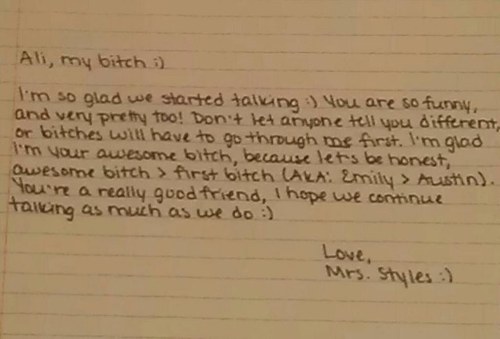 Ali, my bitch :)
I'm so glad we started talking :) You are so funny,
and very pretty too! Don't let anyone tell you different,
or bitches will have to go through me first. I'm glad
I'm your awesome bitch, because let's be honest,
awesome bitch > first bitch (AKA: Emily > Austin).
You're a really good friend, I hope we continue
talking as much as we do :)
Love,
Mrs. Styles :)